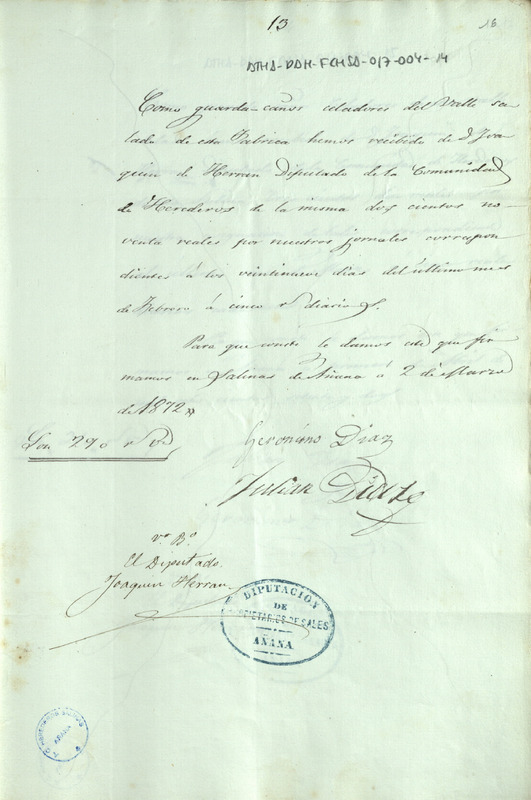 13
16
ATHA-DAH-FCHSA-017-004-14
Como guarda-caños celadores del Valle sa-
lado de esta Fabrica hemos recibido de D. Joa-
quin de Herran Diputado de la Comunidad
de Herederos de la misma dos cientos no-
venta reales por nuestros jornales correspon
dientes á los veintinueve dias del último mes
de Febrero á cinco rs diarios
Para que conste lo damos que fir
mamos en Salinas de Añana á 2 de Marzo
de 1872
Son 290 rs vn
Geronimo Diaz
Julian Diaz
Vº Bº
El Diputado
Joaquin Herran
DIPUTACION
DE
PROPIETARIOS DE SALES
AÑANA
AÑANA